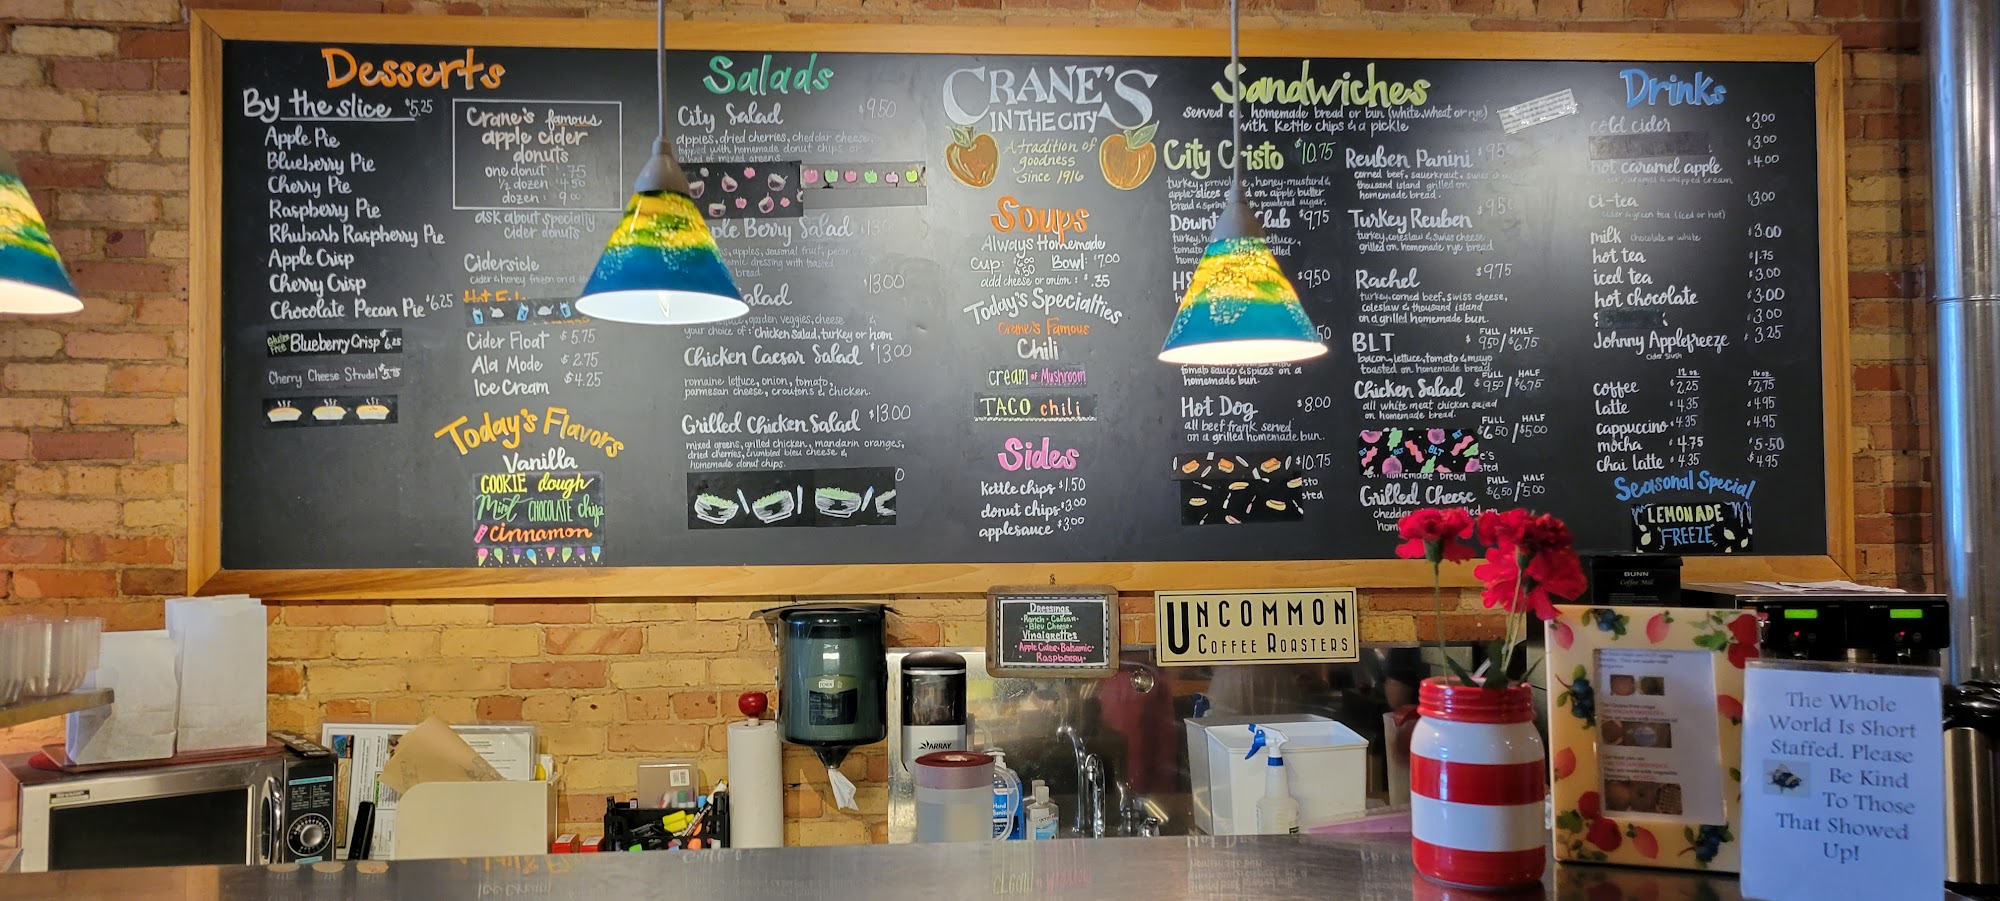 Desserts
By the slice $5.25
Apple Pie
Blueberry Pie
Cherry Pie
Raspberry Pie
Rhubarb Raspberry Pie
Apple Crisp
Cherry Crisp
Chocolate Pecan Pie $6.25
Gluten Free Blueberry Crisp $6.25
Cherry Cheese Strudel $5.75
Crane's famous
apple cider
donuts
one donut .75
½ dozen 4.50
dozen : 9.00
ask about specialty
cider donuts
Cidersicle
cider & honey frozen on a
Cider Float $5.75
Ala Mode $2.75
Ice Cream $4.25
Today's Flavors
Vanilla
COOKIE dough
Mint CHOCOLATE chip
cinnamon
Salads
City Salad $9.50
apples, dried cherries, cheddar cheese,
topped with homemade donut chips on
a bed of mixed greens.
Berry Salad
apples, seasonal fruit, pecan
dressing with toasted
bread.
$13.00
garden veggies, cheese &
your choice of: chicken salad, turkey or ham
Chicken Caesar Salad $13.00
romaine lettuce, onion, tomato,
parmesan cheese, croutons & chicken.
Grilled Chicken Salad $13.00
mixed greens, grilled chicken, mandarin oranges,
dried cherries, crumbled bleu cheese &
homemade donut chips.
CRANE'S
IN THE CITY
A tradition of
goodness
since 1916
Soups
Always Homemade
Cup: Bowl: $7.00
add cheese or onion: $.35
Today's Specialties
Crane's Famous
Chili
cream of Mushroom
TACO chili
Sides
Kettle chips $1.50
donut chips $3.00
applesauce $3.00
Sandwiches
served on homemade bread or bun (white, wheat or rye)
with Kettle chips & a pickle
City Cristo $10.75
turkey, provolone, honey-mustard &
apple slices on apple butter
bread & powdered sugar.
Club $9.75
$9.50
tomato sauce & spices on a
homemade bun.
Hot Dog $8.00
all beef frank served
on a grilled homemade bun.
$10.75
Reuben Panini $9.50
corned beef, sauerkraut, swiss
thousand island grilled on
homemade bread.
Turkey Reuben
turkey, coleslaw & swiss cheese
grilled on homemade rye bread
Rachel $9.75
turkey, corned beef, swiss cheese,
coleslaw & thousand island
on a grilled homemade bun.
BLT FULL HALF $9.50/$6.75
bacon, lettuce, tomato & mayo
toasted on homemade bread.
Chicken Salad FULL HALF $9.50/$6.75
all white meat chicken salad
on homemade bread.
FULL HALF
$6.50/$5.00
homemade bread
Grilled Cheese FULL HALF $6.50/$5.00
Drinks
cold cider $3.00
$3.00
hot caramel apple $4.00
ci-tea $3.00
cider & green tea (iced or hot)
milk chocolate or white $3.00
hot tea $1.75
iced tea $3.00
hot chocolate $3.00
$3.00
Johnny Applefreeze $3.25
cider slush
12 oz. 16 oz.
coffee $2.25 $2.75
latte $4.35 $4.95
cappuccino $4.35 $4.95
mocha $4.75 $5.50
chai latte $4.35 $4.95
Seasonal Special
LEMONADE
FREEZE
Dressings
Ranch · Caesar
Bleu Cheese
Vinaigrettes
Apple Cider · Balsamic
Raspberry
UNCOMMON
COFFEE ROASTERS
BUNN
Coffee Mill
ARRAY
The Whole
World Is Short
Staffed. Please
Be Kind
To Those
That Showed
Up!